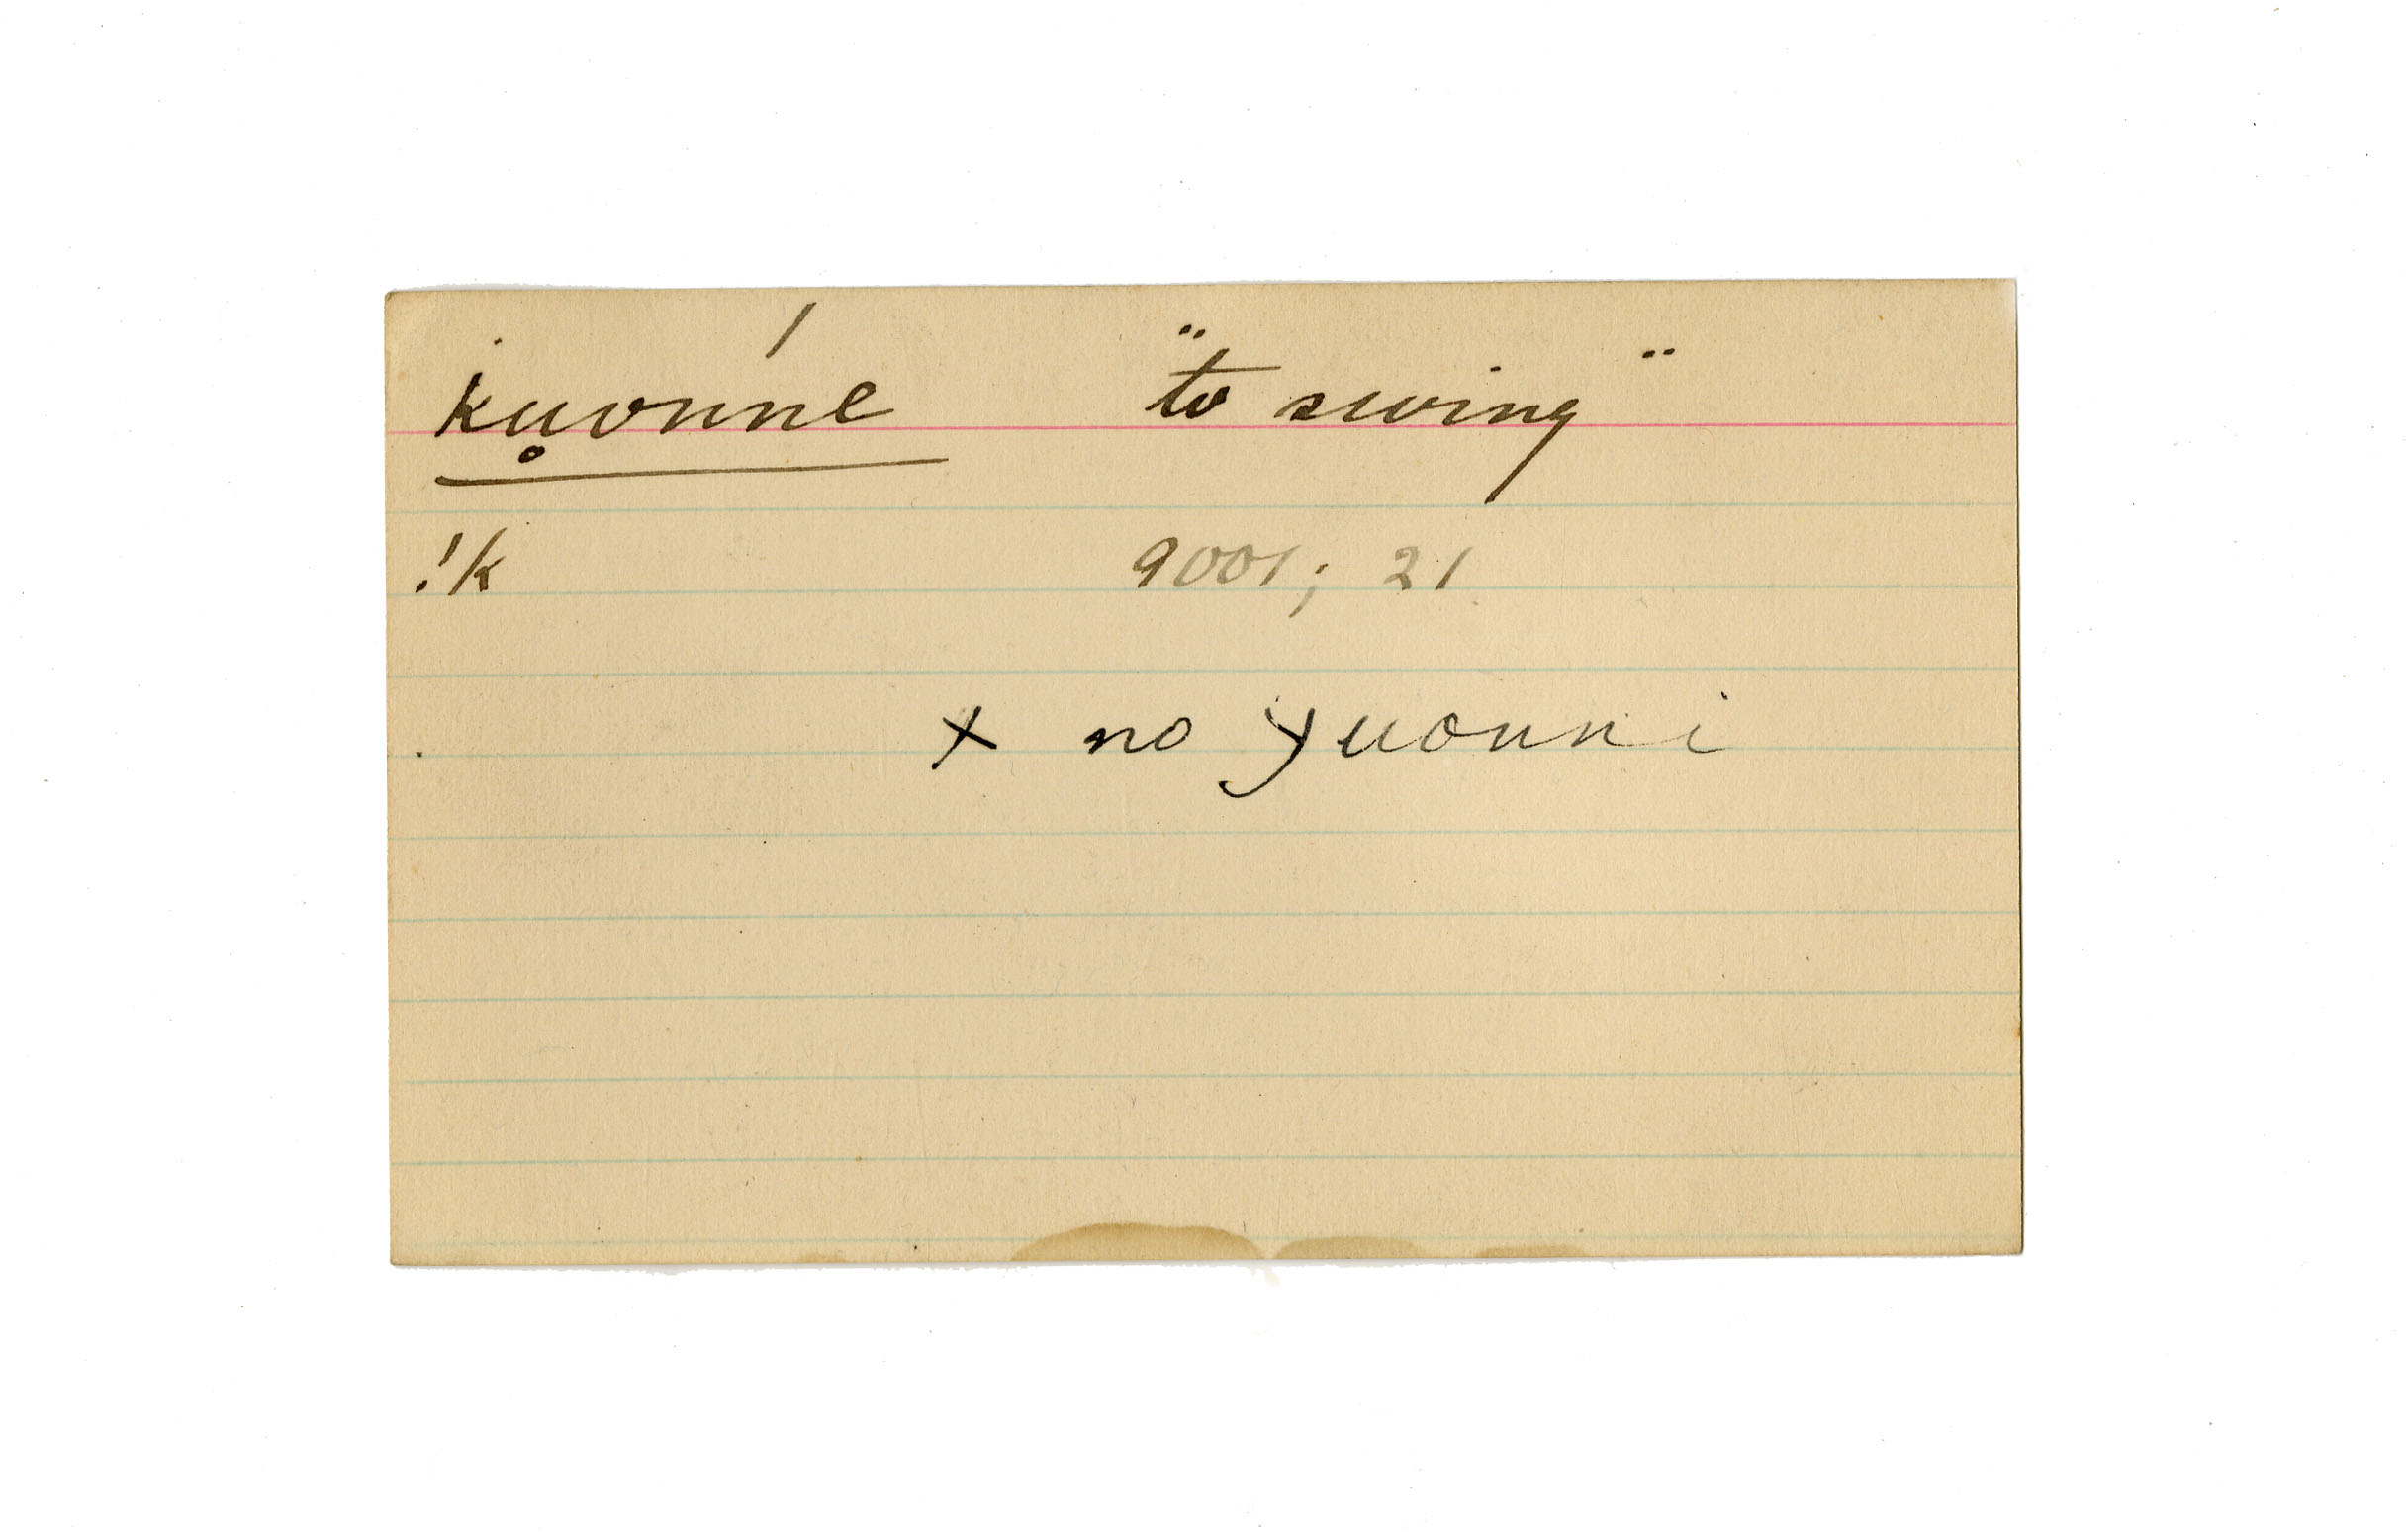 ku̥onné "to swing"
!k 9001; 21
x no yuonni